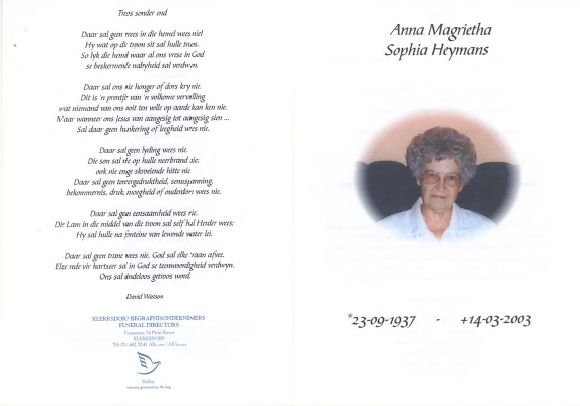 Troos sonder end
Daar sal geen vrees in die hemel wees nie!
Hy wat op die troon sit sal hulle troos.
So lyk die hemel waar al ons vrese in God
se beskermende nabyheid sal verdwyn.
Daar sal ons nie honger of dors kry nie.
Dit is 'n prentjie van 'n volkome vervulling
wat niemand van ons ooit ten volle op aarde kan ken nie.
Maar wanneer ons Jesus van aangesig tot aangesig sien ...
Sal daar geen hunkering of leegheid wees nie.
Daar sal geen lyding wees nie.
Die son sal nie op hulle neerbrand nie:
ook nie enige skroeiende hitte nie
Daar sal geen terneergedruktheid, senuspanning,
bekommernis, druk, moegheid of ouderdom wees nie.
Daar sal geen eensaamheid wees nie.
Die Lam in die middel van die troon sal self hul Herder wees:
Hy sal hulle na fonteine van lewende water lei.
Daar sal geen trane wees nie. God sal elke traan afvee.
Elke rede vir hartseer sal in God se teenwoordigheid verdwyn.
Ons sal eindeloos getroos word.
David Watson
KLERKSDORP BEGRAFNISONDERNEMERS
FUNERAL DIRECTORS
KLERKSDORP
Anna Magrietha
Sophia Heymans
*23-09-1937 - +14-03-2003